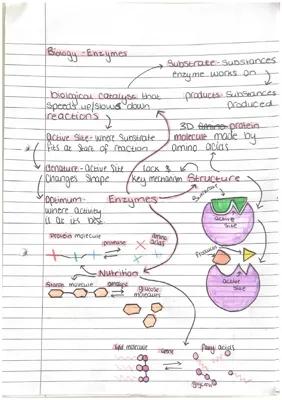 Biology - Enzymes
Substrate - Substances
enzyme works on
biological catalyst that
speeds up/slows down
reactions
products - Substances
produced
3D amino protein
molecule made by
amino acids
Active Site - where Substrate
fits at Start of reaction
denature - Active Site
Changes Shape
lock &
Key mechanism
Structure
Optimum -
where activity
is at its best
Enzymes
Substrate
active
Site
Protein molecule
protease
amino
acids
Products
active
Site
Nutrition
Starch molecule
amylase
glucose
molecules
lipid molecule
lipase
Fatty acids
glycerol